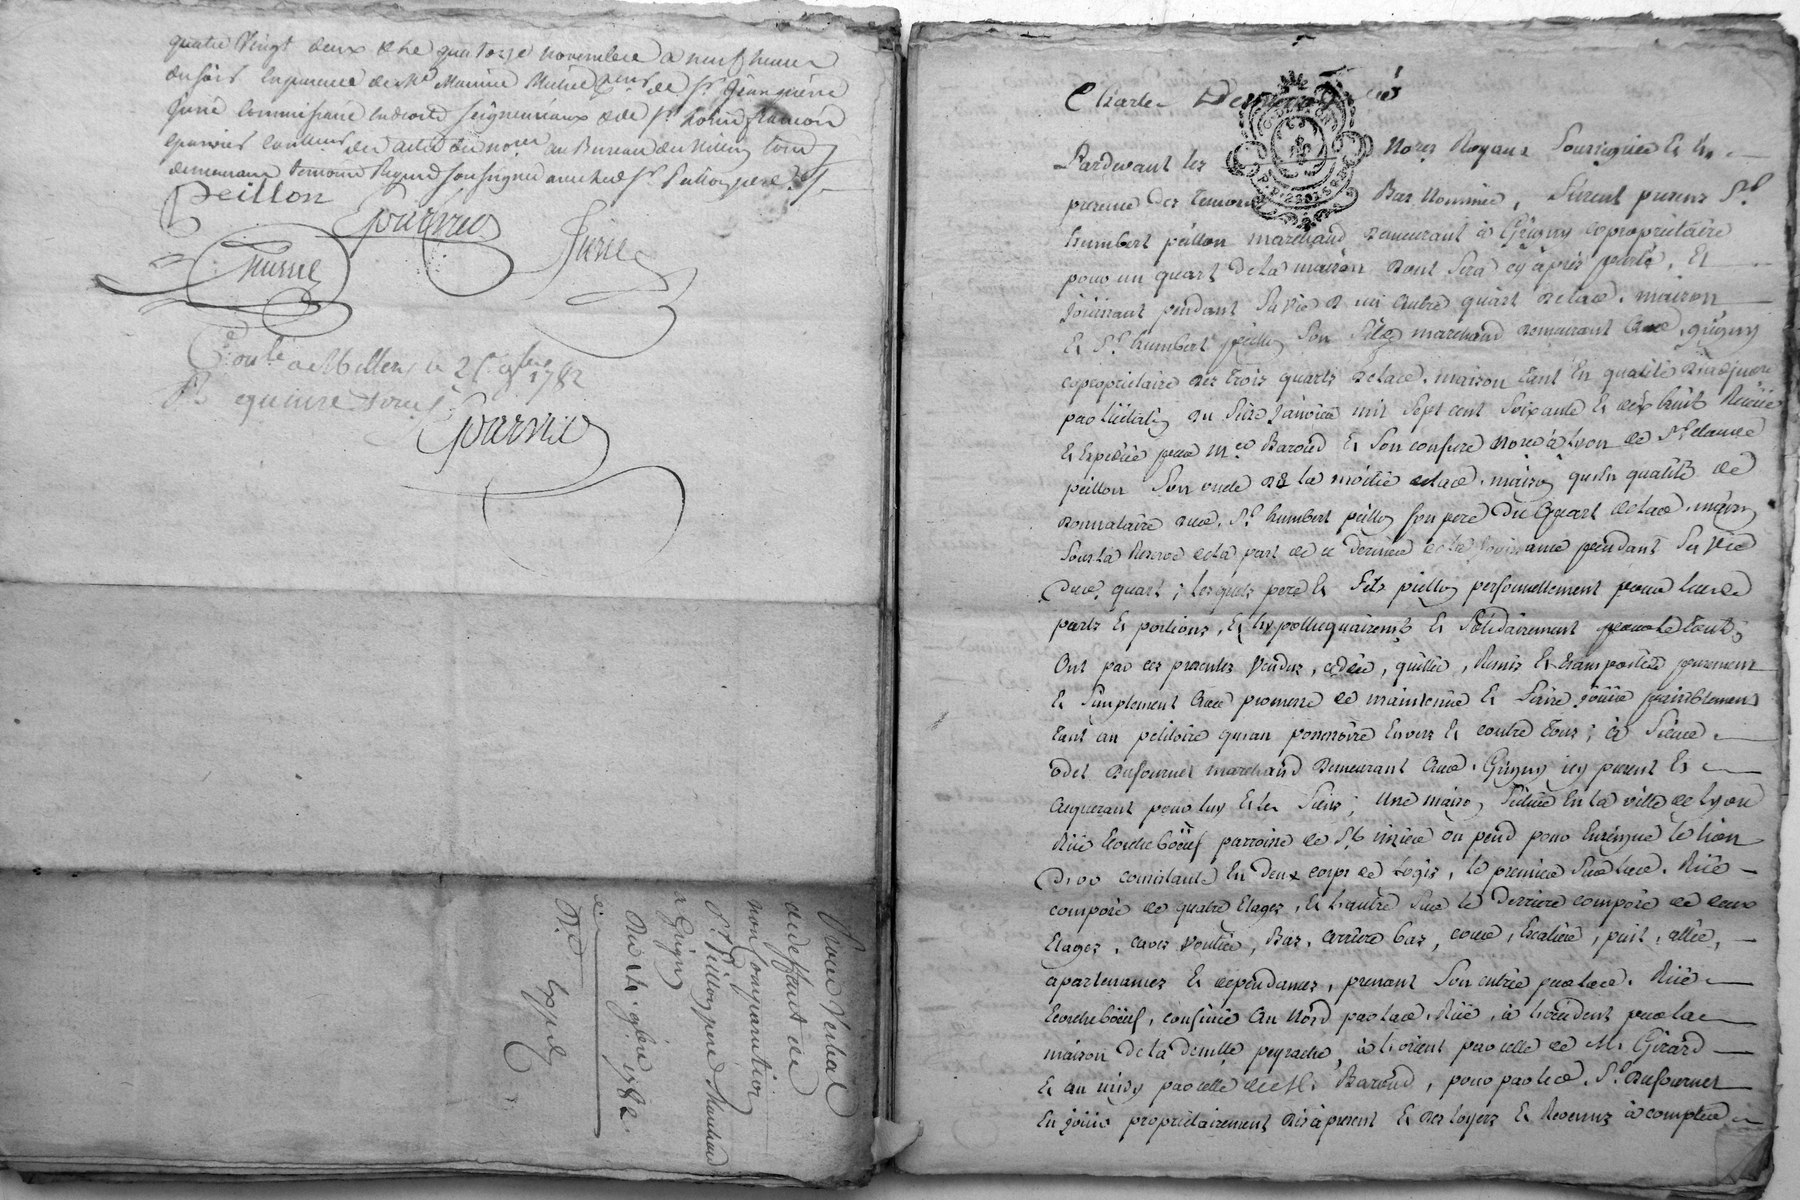 quatre vingt deux & le quatorze novembre a neuf heures
du soir en presence de Me Maurice de Sr Jean pierre
Juriè Commissaire en droits seigneuriaux & de Sr
des actes du noire au Bureau du
demeurant temoins Requis soussignés avec led Sr peillon pere
peillon
Journus
Jurie
Contlé a Millery le 25 9bre 1782
R quinze sous
Journus
Procès Verbal
de deffaut de
non Comparution
Sr Peillon pere Marchand
a Grigny
Du 14 9bre 1782
Expé
Pardevant les Nores Royaux Soussignés & en
presence des temoins Bas Nommés, furent presens Sr
humbert peillon marchand demeurant à Grigny copropriétaire
pour un quart de la maison dont sera cy après parlé, Et
Jouissant pendant sa vie d'un autre quart de lade. maison
Et Sr humbert peillon son fils marchand demeurant aud. grigny
copropriétaire des trois quarts de lade. maison tant En qualité d'adjudicataire
par licitation du seize Janvier mil sept cent soixante & dix huit Reçüe
& Expediée par Me Baroud & son confrere Nore à Lyon de Sr claude
peillon son oncle de la moitié de lade. maison qu'en qualité de
donnataire dud. Sr humbert peillon son pere du Quart de lade. maison
sous la Reserve de la part de ce dernier de la Jouissance pendant sa vie
dud. quart; lesquels pere & fils peillon personnellement pour leurs
parts & portions, & hypothequairemt & solidairement pour le tout;
Ont par ces presentes vendu, cedé, quitté, Remis & transporté purement
& simplement avec promesse de maintenir & faire Joüir paisiblement
tant au petitoire qu'au possessoire Envers & contre tous; à Sieur
odet Dufournel marchand demeurant aud. Grigny icy present &
acquerant pour luy & les siens; Une maison située En la ville de Lyon
Rüe Ecorcheboeuf parroisse de St nizier ou pend pour Enseigne le lion
D'or consistante En deux corps de Logis, le premier sur lad. Rüe
composé de quatre Etages, & l'autre sur le derriere composé de deux
Etages, caves voutées, Bas, arriere bas, cour, Escalier, puit, allée,
apartenances & dependances, prenant son entrée par lade. Rüe
Ecorcheboeuf, confinée au Nord par lade. Rüe, à l'occident par la
maison de la demlle peyrache, à l'orient par celle de M. Girard
& au midy par celle de M. Baroud, pour par led. Sr Dufournel
En Joüir propriétairement dès à present & des loyers & Revenus à compter